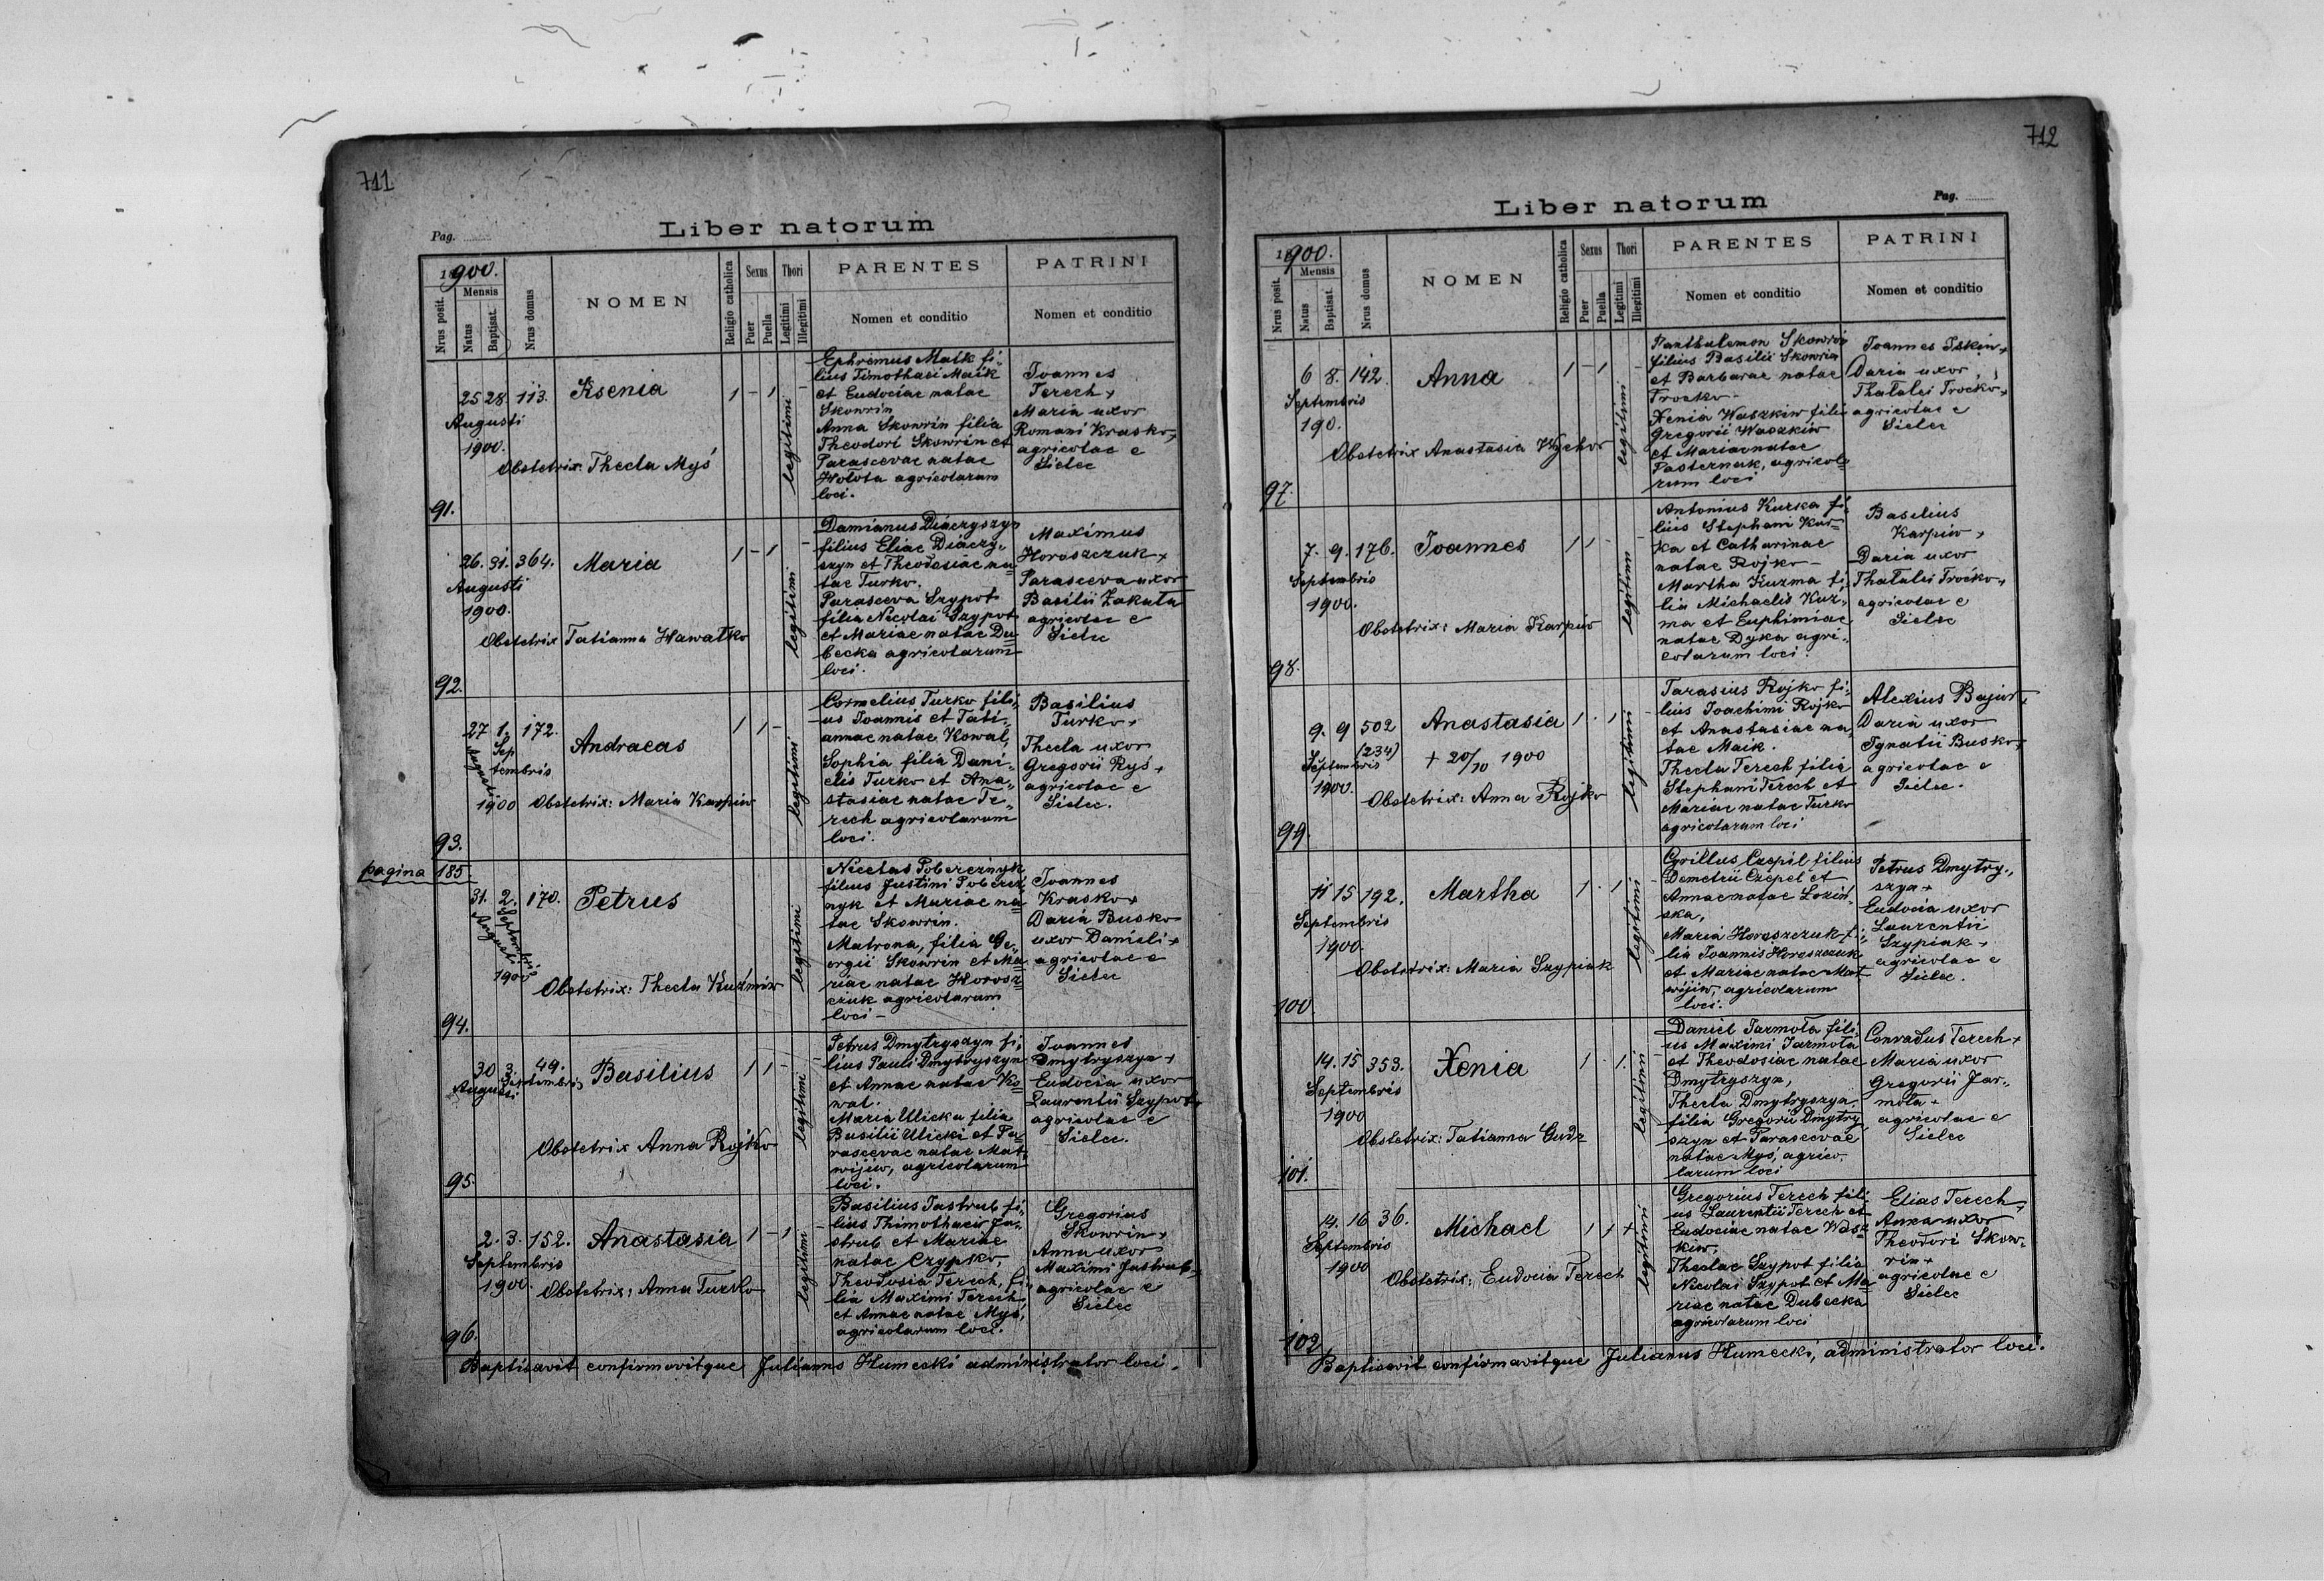 711
Pag.
Liber natorum
1900.
Nrus posit.
Mensis
Natus
Baptisat.
Nrus domus
NOMEN
Religio catholica
Sexus
Puer
Puella
Thori
Legitimi
Illegitimi
PARENTES
Nomen et conditio
PATRINI
Nomen et conditio
91.
25 28. 113. Ksenia 1 - 1 -
Augusti
1900.
Obstetrix: Thecla Myś
legitimi
Ephremus Maik fi„
lius Timothaei Maik
et Eudociae natae
Skowrin
Anna Skowrin filia
Theodori Skowrin et
Parascevae natae
Wołota agricolarum
loci.
Joannes
Terech +
Maria uxor
Romani Krasko +
agricolae e
Sielec
92.
26. 31. 364. Maria 1 - 1 -
Augusti
1900.
Obstetrix Tatianna Hawałko
legitimi
Damianus Diaczyszyn
filius Eliae Diaczy„
szyn et Theodosiae na=
tae Turko.
Parasceva Szypot
filia Nicolai Szypot
et Mariae natae Du=
becka agricolarum
loci.
Maximus
Horoszczuk +
Parasceva uxor
Basilii Zakała
agricolae e
Sielec
93.
27 1. 172. Andraeas 1 1 -
Augusti
Sep
tembris
1900 Obstetrix: Maria Karpiw
legitimi
Cornelius Turko fili„
us Joannis et Tati„
annae natae Kowal,
Sophia filia Dani„
elis Turko et Ana„
stasiae natae Te„
rech agricolarum
loci.
Basilius
Turko +
Thecla uxor
Gregorii Ryś +
agricolae e
Sielec.
pagina 185
94.
31. 2. 170. Petrus
Augusti
Septembris
1900
Obstetrix: Thecla Kuźmiw
legitimi
Nicetas Pobereznyk
filius Justini Poberez
nyk et Mariae na=
tae Skowrin.
Matrona, filia Ge„
orgii Skowrin et Ma=
riae natae Horosz=
czuk agricolarum
loci -
Joannes
Krasko +
Daria Busko
uxor Danieli +
agricolae e
Sielec
95.
30 3. 49. Basilius 1 1 -
Augusti Septembris
Obstetrix Anna Rojko
legitimi
Petrus Dmytryszyn fi„
lius Pauli Dmytryszyn
et Annae natae Ko=
wal.
Maria Ulicka filia
Basilii Ulicki et Pa=
rascevae natae Mat„
wijiw, agricolarum
loci.
Joannes
Dmytryszyn +
Eudocia uxor
Laurentii Szypot +
agricolae e
Sielec.
96.
2. 3. 152. Anastasia 1 - 1 -
Septembris
1900. Obstetrix: Anna Turko
legitimi
Basilius Jastrub fi„
lius Thimothaei Ja„
strub et Mariae
natae Czypko,
Theodosia Terech, fi„
lia Maximi Terech
et Annae natae Myś,
agricolarum loci.
Gregorius
Skowrin +
Anna uxor
Maximi Jastrub +
agricolae e
Sielec
Baptisavit confirmavitque Julianus Humecki administrator loci.
712
Liber natorum
Pag.
1900.
Nrus posit.
Mensis
Natus
Baptisat.
Nrus domus
NOMEN
Religio catholica
Sexus
Puer
Puella
Thori
Legitimi
Illegitimi
PARENTES
Nomen et conditio
PATRINI
Nomen et conditio
97.
6 8. 142. Anna 1 - 1 -
Septembris
190.
Obstetrix Anastasia Wychor
legitimi
Panthalemon Skowrin
filius Basilii Skowrin
et Barbarae natae
Trocko -
Xenia Waszkiw filia
Gregorii Waszkiw
et Mariae natae
Pasternak, agricola=
rum loci
Joannes Iskiw +
Daria uxor
Thalalei Trocko +
agricolae e
Sielec
98.
7. 9. 176. Joannes 1 1 - -
Septembris
1900.
Obstetrix: Maria Karpiw
legitimi
Antonius Kurka fi„
lius Stephani Kur=
ka et Catharinae
natae Rojko -
Martha Kuzma fi„
lia Michaelis Kuz„
ma et Euphimiae
natae Dyka agri„
colarum loci.
Basilius
Karpiw +
Daria uxor
Thalalei Trocko +
agricolae e
Sielec
99.
9. 9 502 Anastasia 1 - 1 -
(234)
Septembris + 20/10 1900
1900.
Obstetrix: Anna Rojko
legitimi
Tarasius Rojko fi„
lius Joachimi Rojko
et Anastasiae na„
tae Maik.
Thecla Terech filia
Stephani Terech et
Mariae natae Turko
agricolarum loci
Alexius Bajur +
Daria uxor
Ignatii Busko +
agricolae e
Sielec.
100.
11 15 192. Martha 1 - 1 -
Septembris
1900.
Obstetrix: Maria Szypiak
legitimi
Cyrillus Czepil filius
Demetrii Czepel et
Annae natae Łoziń„
ska,
Maria Horoszczuk fi„
lia Joannis Horoszczuk
et Mariae natae Mat
wijiw, agricolarum
loci.
Petrus Dmytry„
szyn +
Eudocia uxor
Laurentii
Szypiak +
agricolae e
Sielec.
101.
14. 15 353. Xenia 1 - 1. -
Septembris
1900
Obstetrix: Tatianna Gudz
legitimi
Daniel Jarmoła fili„
us Maximi Jarmoła
et Theodosiae natae
Dmytryszyn,
Thecla Dmytryszyn,
filia Gregorii Dmytry
szyn et Parascevae
natae Myś, agrico„
larum loci
Conradus Terech +
Maria uxor
Gregorii Jar„
moła +
agricolae e
Sielec
102
14. 16 36. Michael 1 1 +
Septembris
1900
Obstetrix: Eudocia Terech
legitimi
Gregorius Terech fili„
us Laurentii Terech et
Eudociae natae Wasz=
kiw.
Theclae Szypot filia
Nicolai Szypot et Ma=
riae natae Dubecka
agricolarum loci
Elias Terech +
Anna uxor
Theodori Skow„
rin +
agricolae e
Sielec
Baptisavit confirmavitque Julianus Humecki, administrator loci.